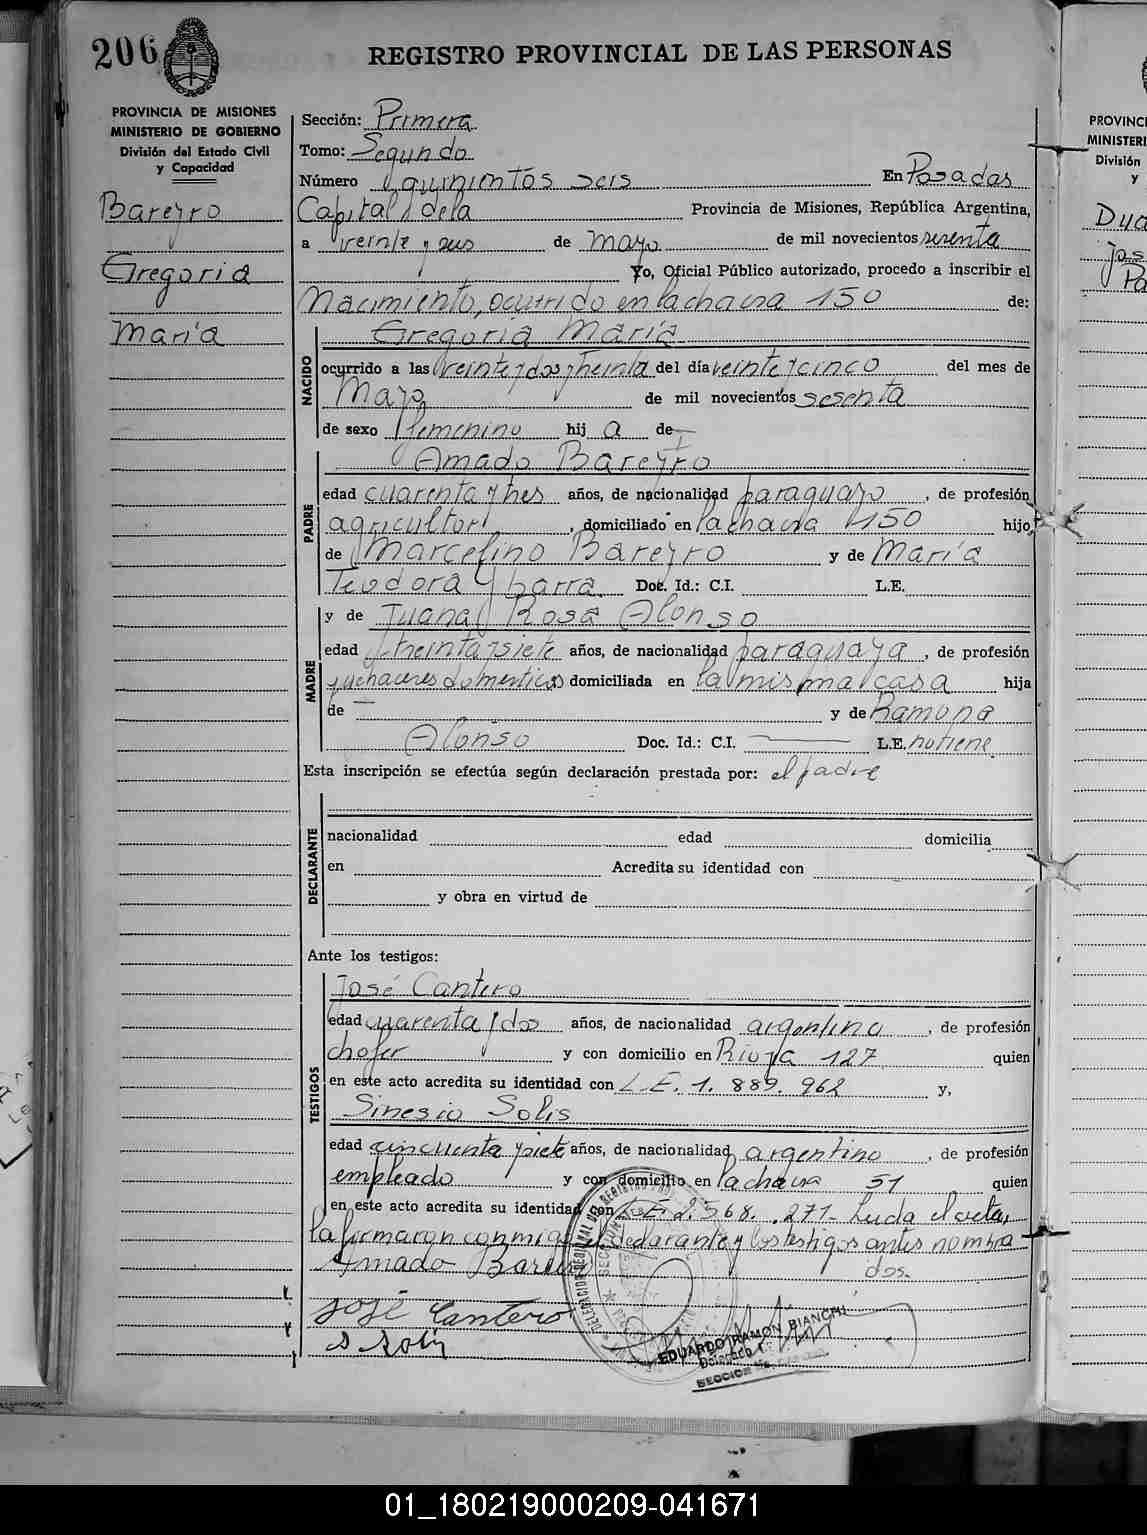 206
REGISTRO PROVINCIAL DE LAS PERSONAS
PROVINCIA DE MISIONES
MINISTERIO DE GOBIERNO
División del Estado Civil
y Capacidad
Bareyro
Gregoria
María
Sección: Primera
Tomo: Segundo
Número quinientos seis En Posadas
Capital de la Provincia de Misiones, República Argentina,
a veinte y seis de mayo de mil novecientos sesenta
Yo, Oficial Público autorizado, procedo a inscribir el
Nacimiento, ocurrido en la chacra 150 de:
NACIDO
Gregoria María
ocurrido a las veinte y dos y treinta del día veinte y cinco del mes de
Mayo de mil novecientos sesenta
de sexo femenino hij a de
PADRE
Amado Bareyro
edad cuarenta y tres años, de nacionalidad paraguayo, de profesión
agricultor, domiciliado en la chacra 150 hijo
de Marcelino Bareyro y de María
Teodora Ybarra Doc. Id.: C.I. L.E.
y de Juana Rosa Alonso
MADRE
edad treinta y siete años, de nacionalidad paraguaya, de profesión
quehaceres domésticos domiciliada en la misma casa hija
de — y de Ramona
Alonso Doc. Id.: C.I. — L.E. no tiene
Esta inscripción se efectúa según declaración prestada por: el padre
DECLARANTE
nacionalidad edad domicilia
en Acredita su identidad con
y obra en virtud de
Ante los testigos:
TESTIGOS
José Cantero
edad cuarenta y dos años, de nacionalidad argentino, de profesión
chofer y con domicilio en Rioja 127 quien
en este acto acredita su identidad con L.E. 1.889.962 y,
Sinesio Solis
edad cincuenta y siete años, de nacionalidad argentino, de profesión
empleado y con domicilio en la chacra 51 quien
en este acto acredita su identidad con L.E. 2.568.271- Leida el acta,
la firmaron conmigo el declarante y los testigos antes nombra
dos.
Amado Bareiro
José Cantero
S Solis
EDUARDO RAMON BIANCHI
Delegado
SECCION
PROVINCI
MINISTERI
División
y
01_180219000209-041671